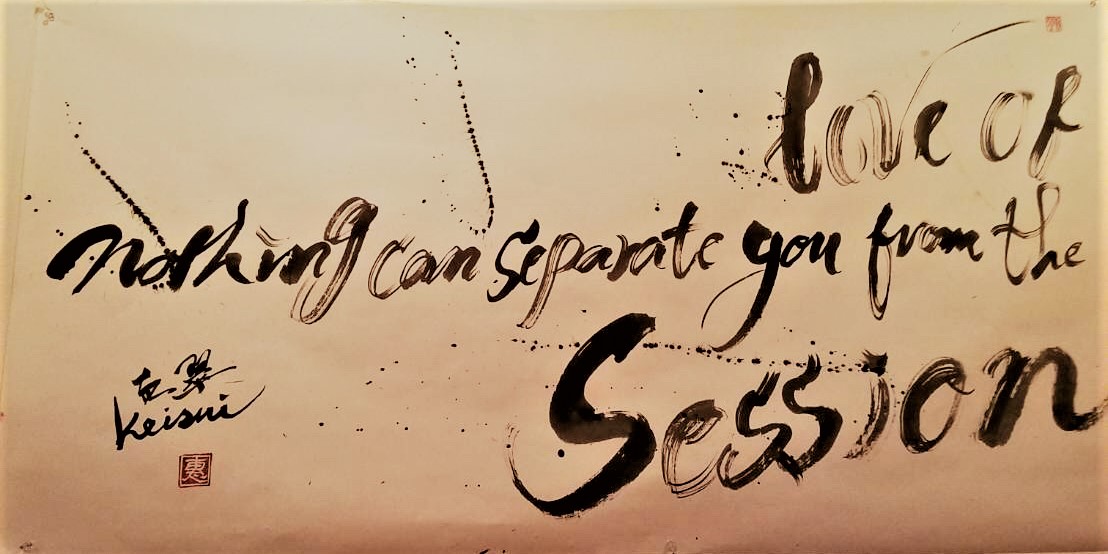 love of
nothing can separate you from the
Session
Keisui